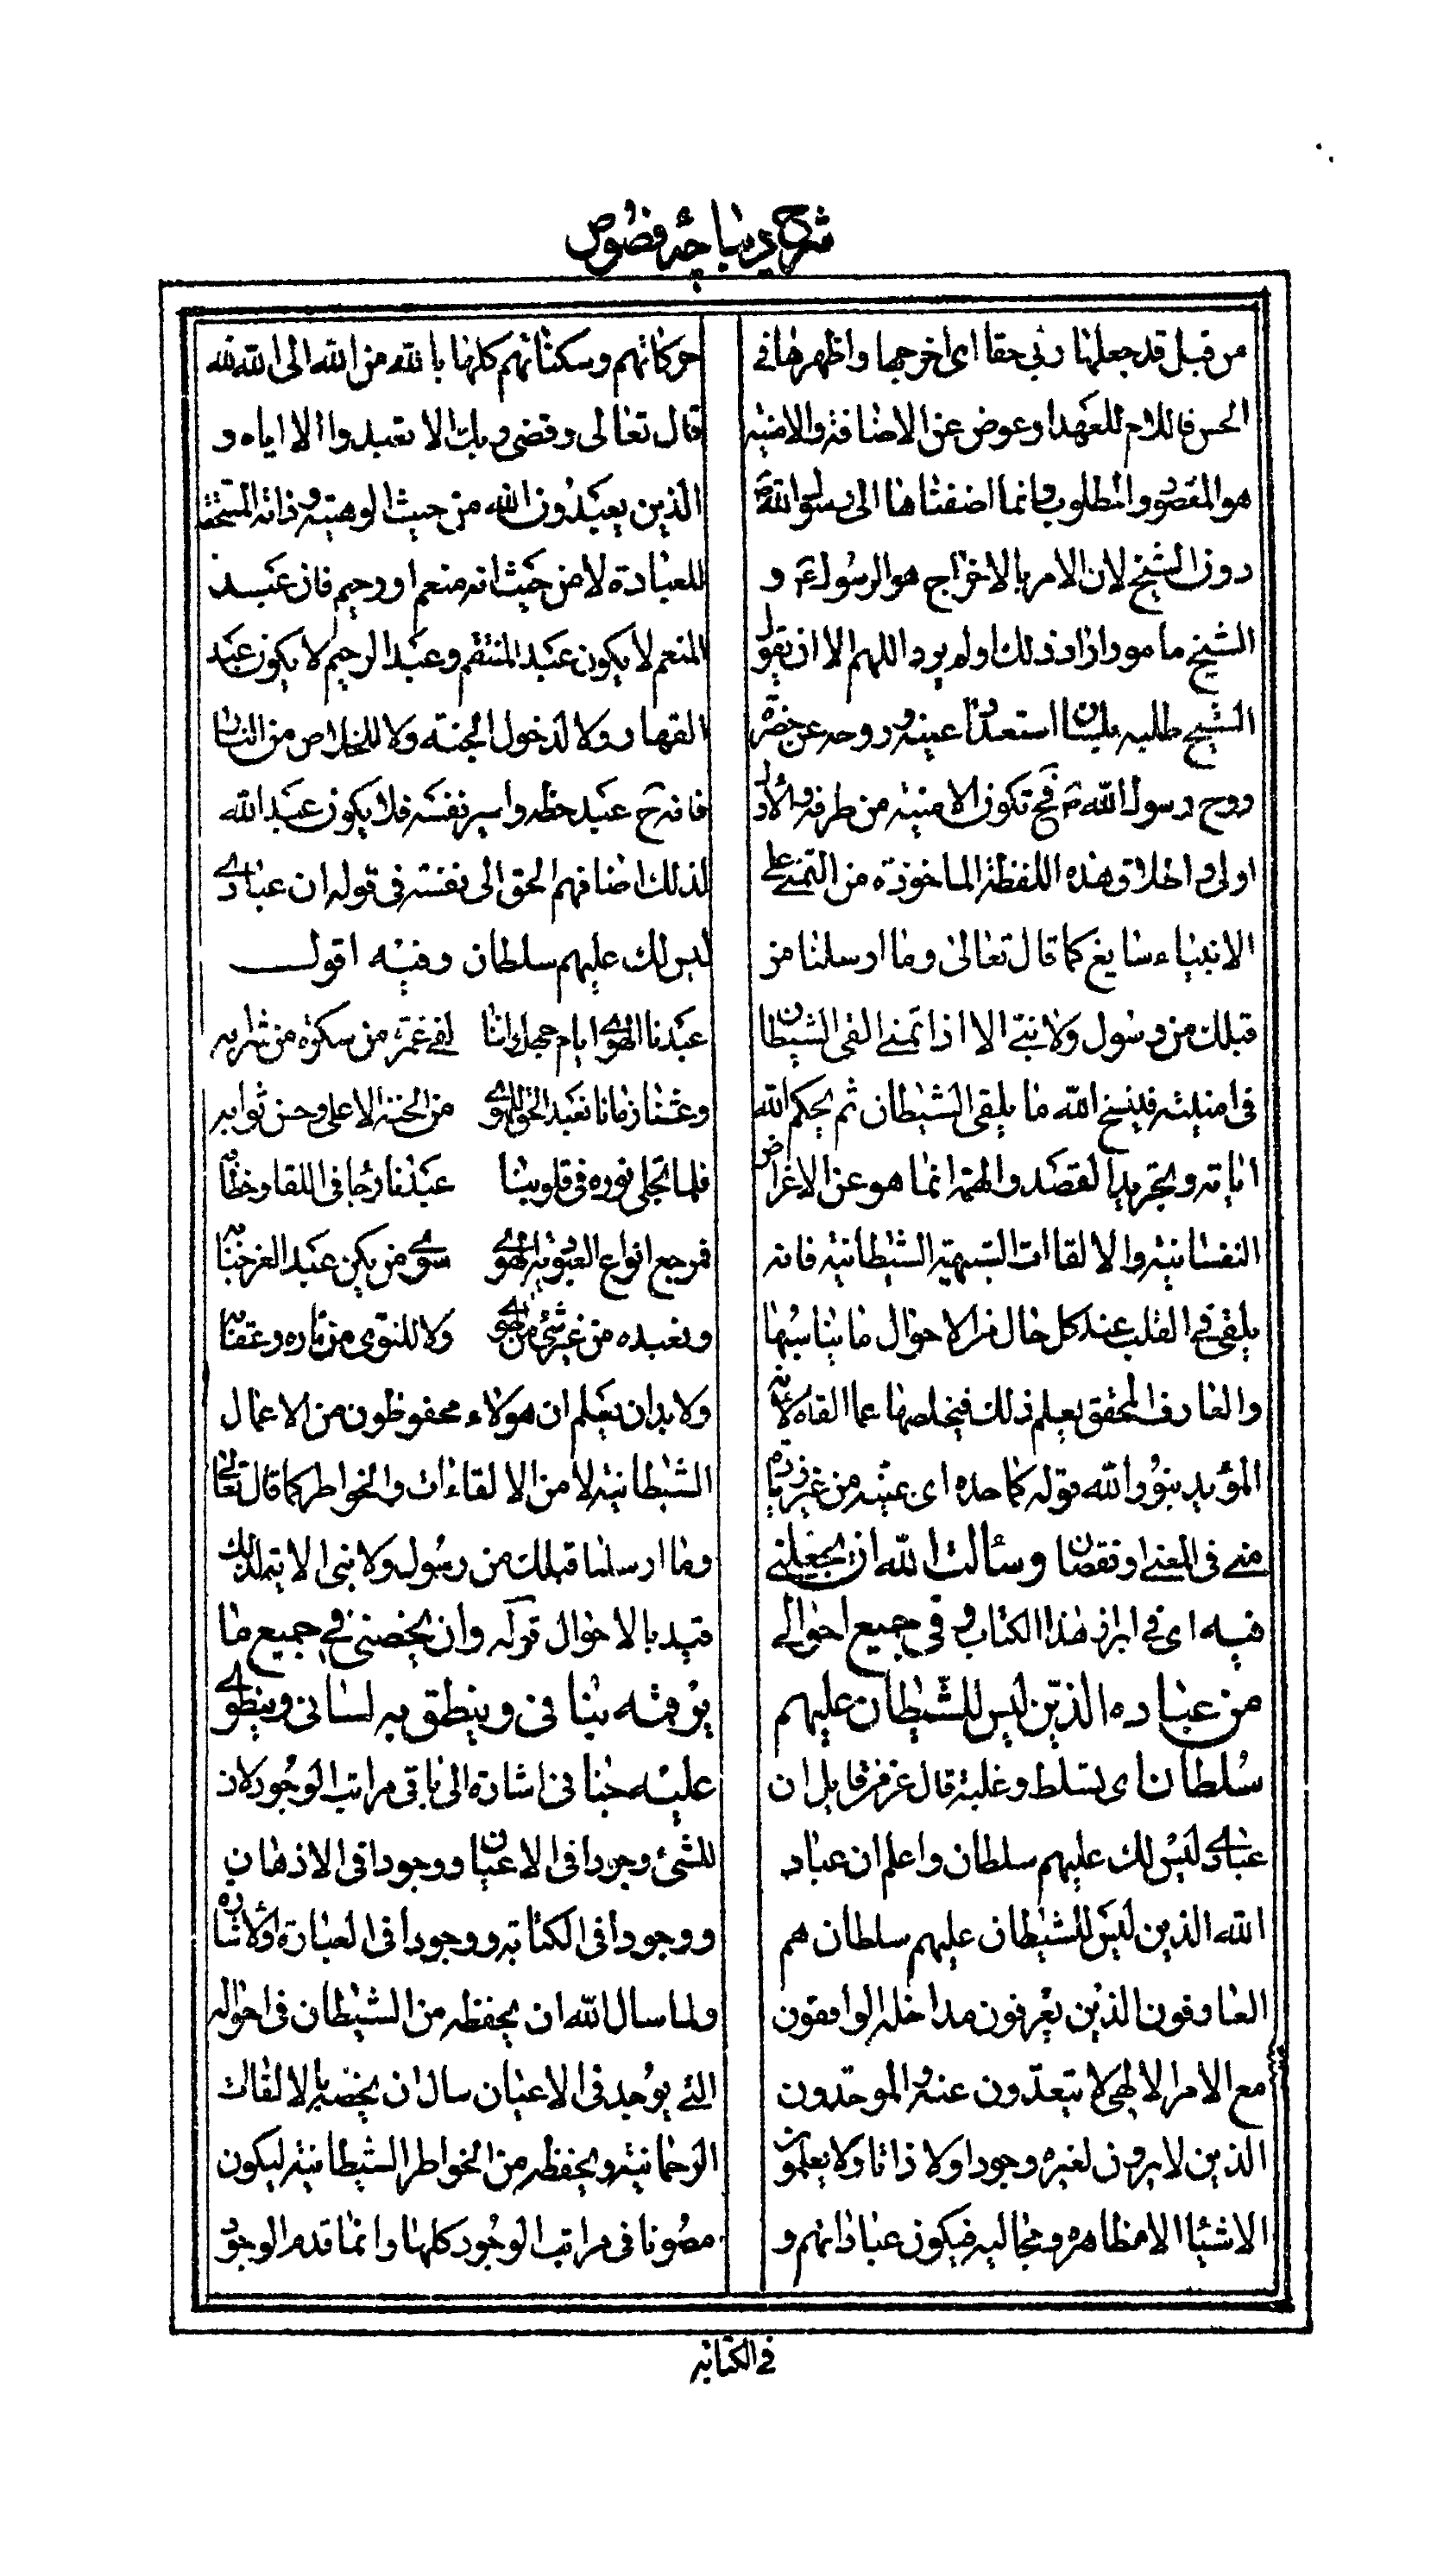 شرح ديباجه فصوص
من قبل قد جعلها ربى حقا اى اخرجها واظهرها فى
الحس فاللام للعهد او عوض عن الاضافة والامنية
هو المقصود والمطلوب وانما اضفناها الى رسول الله ص
دون الشيخ لان الامر بالاخراج هو الرسول ع و
الشيخ مامور اراد ذلك اولم يرد اللهم الا ان يقول
الشيخ طلبه بلسان استعداد عينه وروحه عن حضرة
روح رسول الله ص فح تكون الامنية من طرفه والاول
اولى واطلاق هذه اللفظة الماخوذة من التمنى على
الانبياء سايغ كما قال تعالى وما ارسلنا من
قبلك من رسول ولا نبى الا اذا تمنى القى الشيطان
فى امنيته فينسخ الله ما يلقى الشيطان ثم يحكم الله
اياته وتجريد القصد والهمة انما هو عن الاغراض
النفسانية والالقاات الشيطانية فانه
يلقى فى القلب عند كل حال من الاحوال ما يناسبها
والعارف المحقق يعلم ذلك فيخلصها عما القاه لانه
المؤيد بنور الله قوله كما حده اى عينه من غير زيادة
منى فى المعنى او نقصان وسالت الله ان يجعلنى
فيه اى فى ابراز هذا الكتاب وفى جميع احوالى
من عباده الذين ليس للشيطان عليهم
سلطان اى تسلط وغلبة قال عز من قايل ان
عبادى ليس لك عليهم سلطان واعلم ان عباد
الله الذين ليس للشيطان عليهم سلطان هم
العارفون الذين يعرفون مداخله الواقفون
مع الامر الالهى لا يتعدون عنه والموحدون
الذين لا يرون لغيره وجودا ولا ذاتا ولا يعلمون
الاشيا الا مظاهره ومجاليه فيكون عباداتهم و
حركاتهم وسكناتهم كلها بالله من الله الى الله لله
قال تعالى وقضى ربك الا تعبدوا الا اياه و
الذين يعبدون الله من حيث الوهيته وذاته المستحقة
للعبادة لا من حيث انه منعم او رحيم فان عبد
المنعم لا يكون عبد المنتقم وعبد الرحيم لا يكون عبد
القهار ولا لدخول الجنة ولا للخلاص من النيران
فانه ح عبد حظه واسير نفسه فلا يكون عبد الله
لذلك اضافهم الحق الى نفسه فى قوله ان عبادى
ليس لك عليهم سلطان وفيه اقول
عبدنا الهوى ايام جهل واننا لفى غمرة من سكرة من شرابه
وعشنا زمانا نعبد الحق للهوى من الجنة الاعلى وحسن ثوابه
فلما تجلى نوره فى قلوبنا عبدنا رجا فى اللقا وخطابه
فمرجع انواع العبودية الهوى سوى من يكن عبد العز جنابه
ونعبده من غير شئ من الهوى ولا للنوى من ناره وعقابه
ولا بد ان يعلم ان هولاء محفوظون من الاعمال
الشيطانية لا من الالقاءات والخواطر كما قال تعالى
وما ارسلنا قبلك من رسول ولا نبى الاية لذلك
قيد بالاحوال قوله وان يخصنى فى جميع ما
يرقمه بنانى وينطق به لسانى وينطوى
عليه جنانى اشارة الى باقى مراتب الوجود لان
للشئ وجودا فى الاعيان ووجودا فى الاذهان
ووجودا فى الكتابة ووجودا فى العبارة والاشارة
ولما سال الله ان يحفظه من الشيطان فى احواله
التى يوجد فى الاعيان سال ان يخصه بالالقاات
الرحمانية ويحفظه من الخواطر الشيطانية ليكون
مصونا فى مراتب الوجود كلها وانما قدم الوجود
فى الكتابة